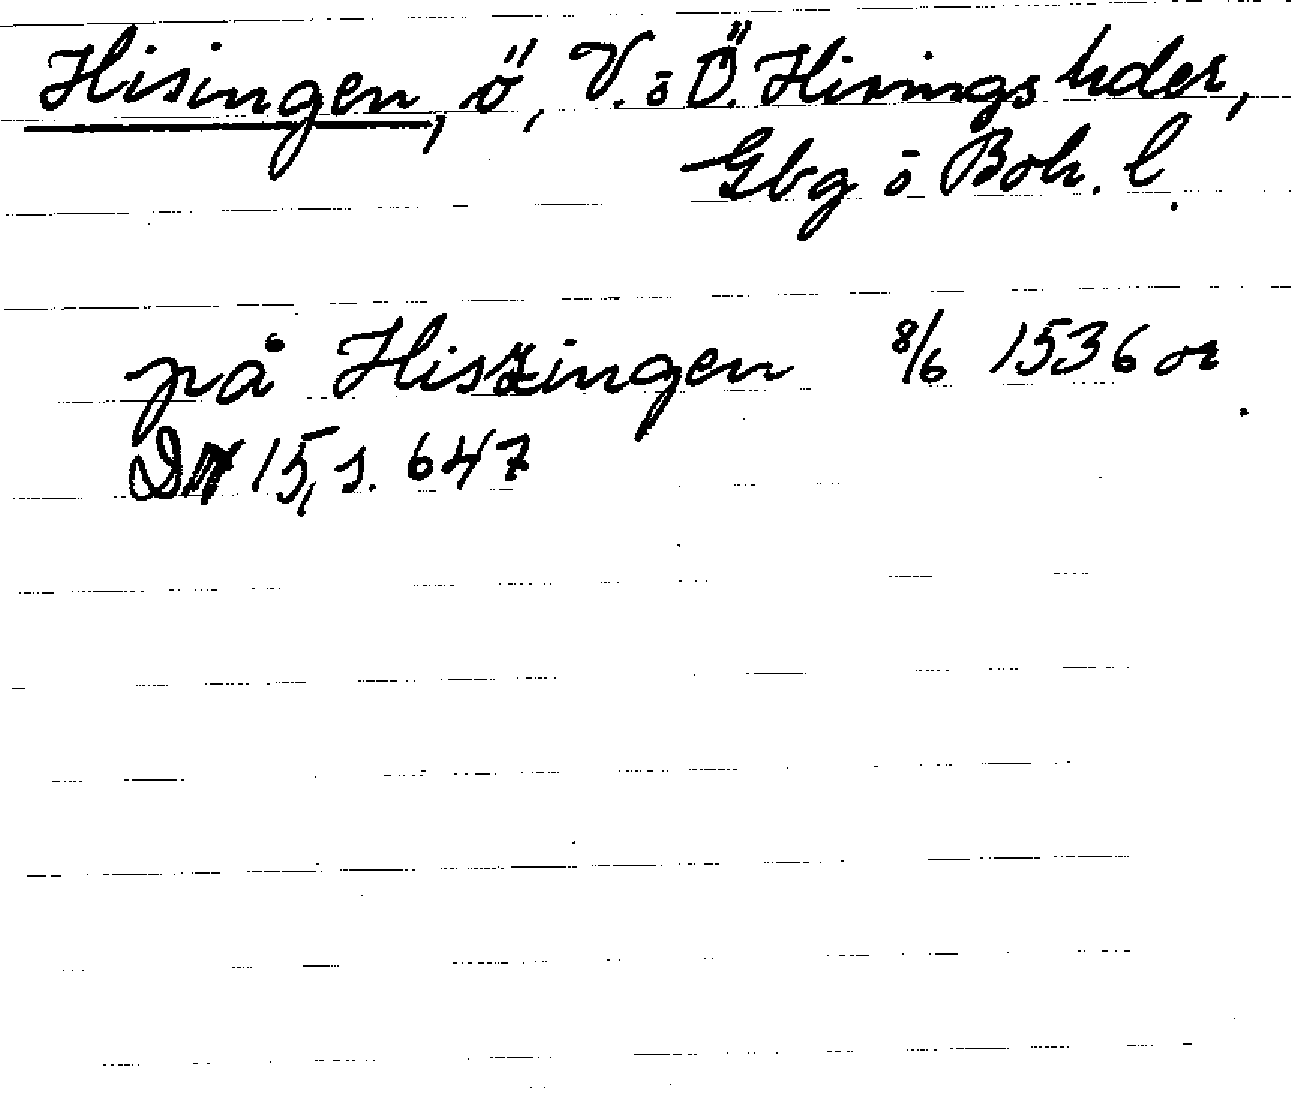 Hisingen, ö, V. o Ö. Hisings hder,
Gbg o Boh. l.
på Hiszingen 8/6 1536 or.
DN 15, s. 647